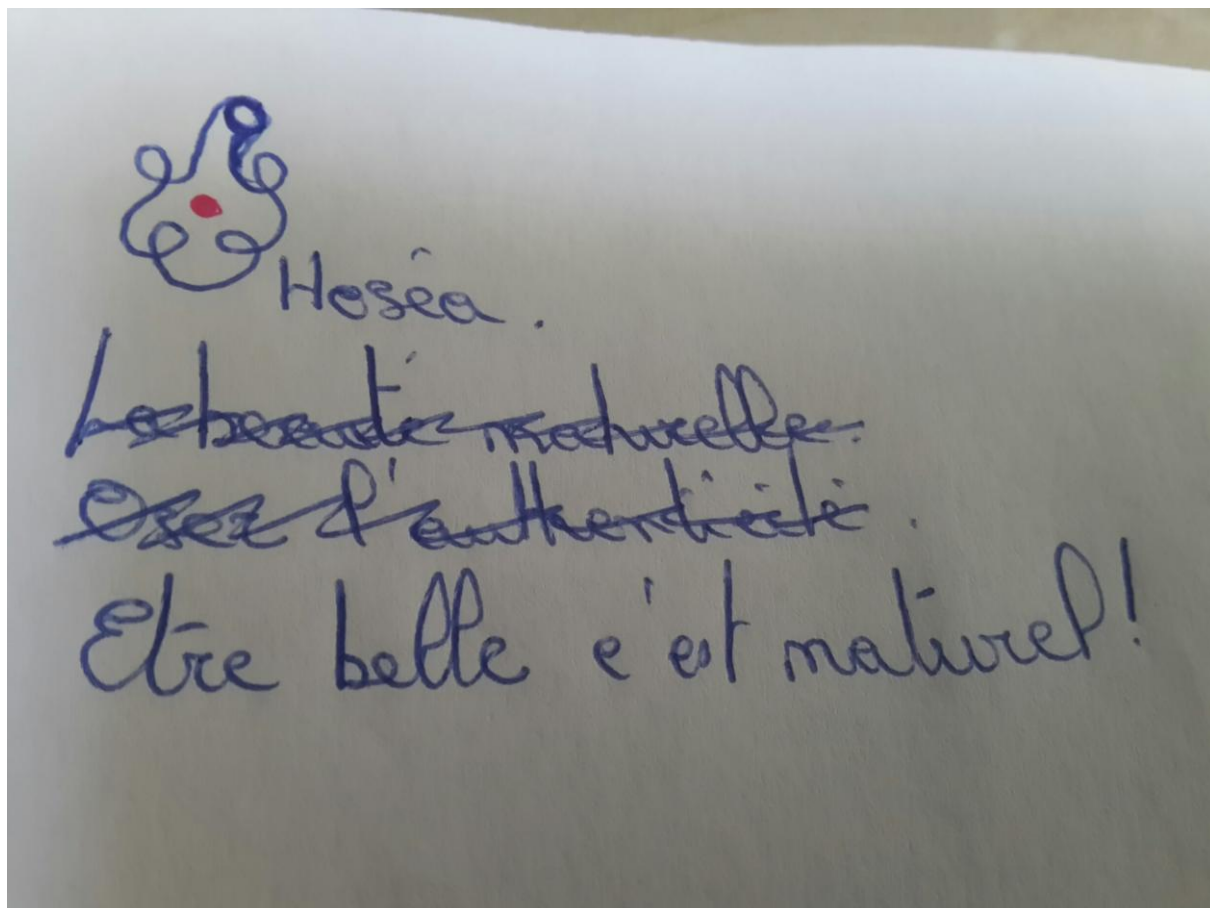 Hoséa.
La beauté naturelle.
Osez l'authenticité.
Etre belle c'est naturel!